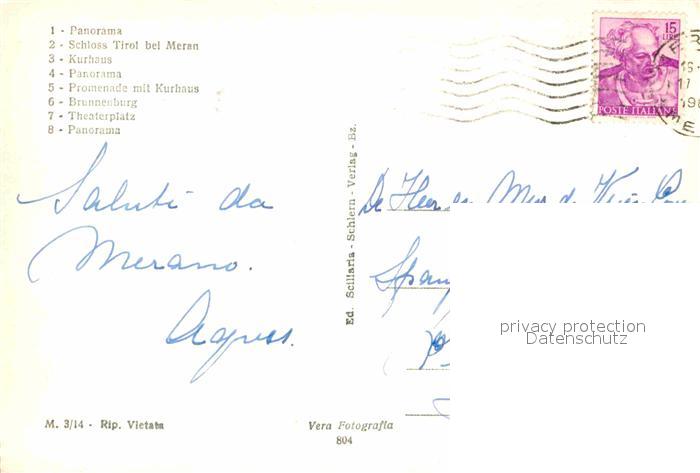 1 - Panorama
2 - Schloss Tirol bei Meran
3 - Kurhaus
4 - Panorama
5 - Promenade mit Kurhaus
6 - Brunnenburg
7 - Theaterplatz
8 - Panorama
15
LIRE
POSTE ITALIANE
Saluti da
Merano.
Agnes.
Ed. Sciliaria - Schlern - Verlag - Bz.
De Heer en Mevr. de
privacy protection
Datenschutz
M. 3/14 - Rip. Vietata
Vera Fotografia
804